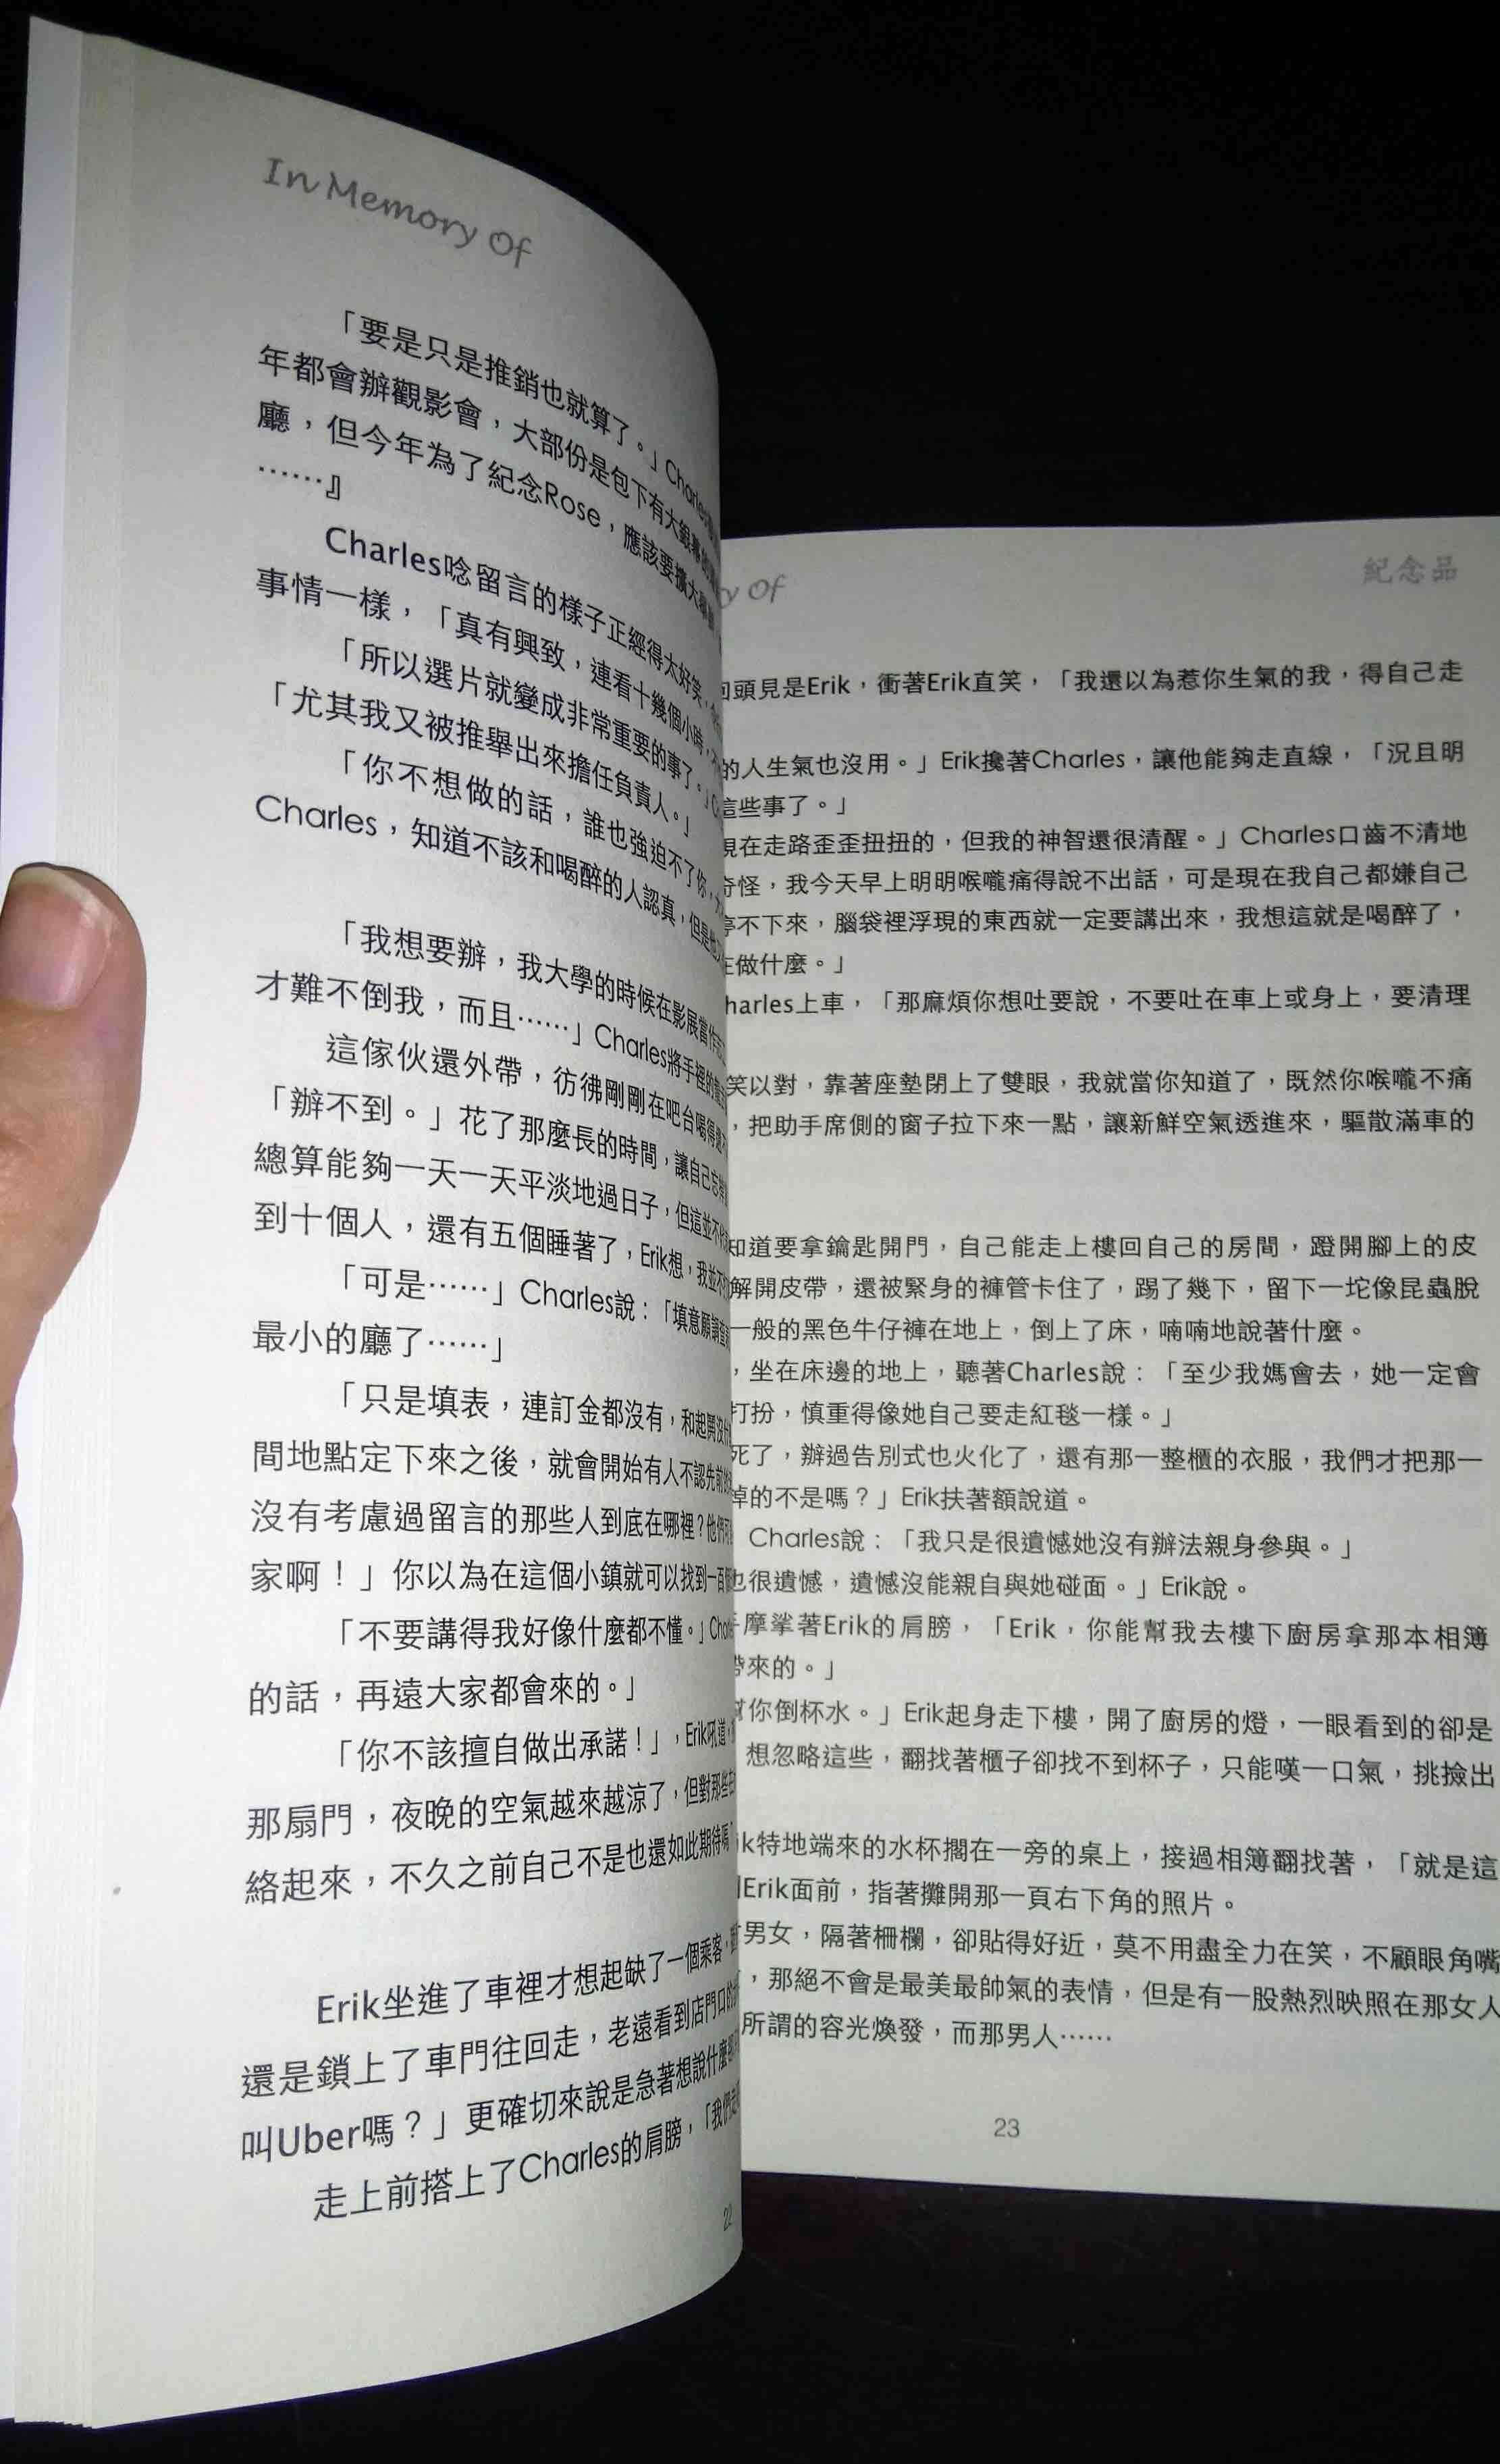 In Memory Of
「要是只是推銷也就算了。」Charles
年都會辦觀影會，大部份是包下有大銀幕
廳，但今年為了紀念Rose，應該要擴大
……』
Charles唸留言的樣子正經得太好笑，
事情一樣，「真有興致，連看十幾個小時，
「所以選片就變成非常重要的事了。」
「尤其我又被推舉出來擔任負責人。」
「你不想做的話，誰也強迫不了你，
Charles，知道不該和喝醉的人認真，但是他
「我想要辦，我大學的時候在影展當
才難不倒我，而且……」Charles將手裡的
這傢伙還外帶，彷彿剛剛在吧台喝得
「辦不到。」花了那麼長的時間，讓自己忘
總算能夠一天一天平淡地過日子，但這並不
到十個人，還有五個睡著了，Erik想，我並不
「可是……」Charles說：「填意願調查
最小的廳了……」
「只是填表，連訂金都沒有，和起鬨沒什
間地點定下來之後，就會開始有人不認先前
沒有考慮過留言的那些人到底在哪裡？他們可
家啊！」你以為在這個小鎮就可以找到一百個
「不要講得我好像什麼都不懂。」Cha
的話，再遠大家都會來的。」
「你不該擅自做出承諾！」，Erik吼道，
那扇門，夜晚的空氣越來越涼了，但對那些
絡起來，不久之前自己不是也還如此期待嗎
Erik坐進了車裡才想起缺了一個乘客，
還是鎖上了車門往回走，老遠看到店門口
叫Uber嗎？」更確切來說是急著想說什麼
走上前搭上了Charles的肩膀，「我們
22
y Of
紀念品
回頭見是Erik，衝著Erik直笑，「我還以為惹你生氣的我，得自己走
的人生氣也沒用。」Erik攙著Charles，讓他能夠走直線，「況且明
這些事了。」
現在走路歪歪扭扭的，但我的神智還很清醒。」Charles口齒不清地
奇怪，我今天早上明明喉嚨痛得說不出話，可是現在我自己都嫌自己
停不下來，腦袋裡浮現的東西就一定要講出來，我想這就是喝醉了，
在做什麼。」
harles上車，「那麻煩你想吐要說，不要吐在車上或身上，要清理
笑以對，靠著座墊閉上了雙眼，我就當你知道了，既然你喉嚨不痛
，把助手席側的窗子拉下來一點，讓新鮮空氣透進來，驅散滿車的
知道要拿鑰匙開門，自己能走上樓回自己的房間，蹬開腳上的皮
解開皮帶，還被緊身的褲管卡住了，踢了幾下，留下一坨像昆蟲脫
一般的黑色牛仔褲在地上，倒上了床，喃喃地說著什麼。
，坐在床邊的地上，聽著Charles說：「至少我媽會去，她一定會
打扮，慎重得像她自己要走紅毯一樣。」
死了，辦過告別式也火化了，還有那一整櫃的衣服，我們才把那一
掉的不是嗎？」Erik扶著額說道。
Charles說：「我只是很遺憾她沒有辦法親身參與。」
也很遺憾，遺憾沒能親自與她碰面。」Erik說。
手摩挲著Erik的肩膀，「Erik，你能幫我去樓下廚房拿那本相簿
帶來的。」
幫你倒杯水。」Erik起身走下樓，開了廚房的燈，一眼看到的卻是
想忽略這些，翻找著櫃子卻找不到杯子，只能嘆一口氣，挑撿出
ik特地端來的水杯擱在一旁的桌上，接過相簿翻找著，「就是這
Erik面前，指著攤開那一頁右下角的照片。
男女，隔著柵欄，卻貼得好近，莫不用盡全力在笑，不顧眼角嘴
，那絕不會是最美最帥氣的表情，但是有一股熱烈映照在那女人
所謂的容光煥發，而那男人……
23